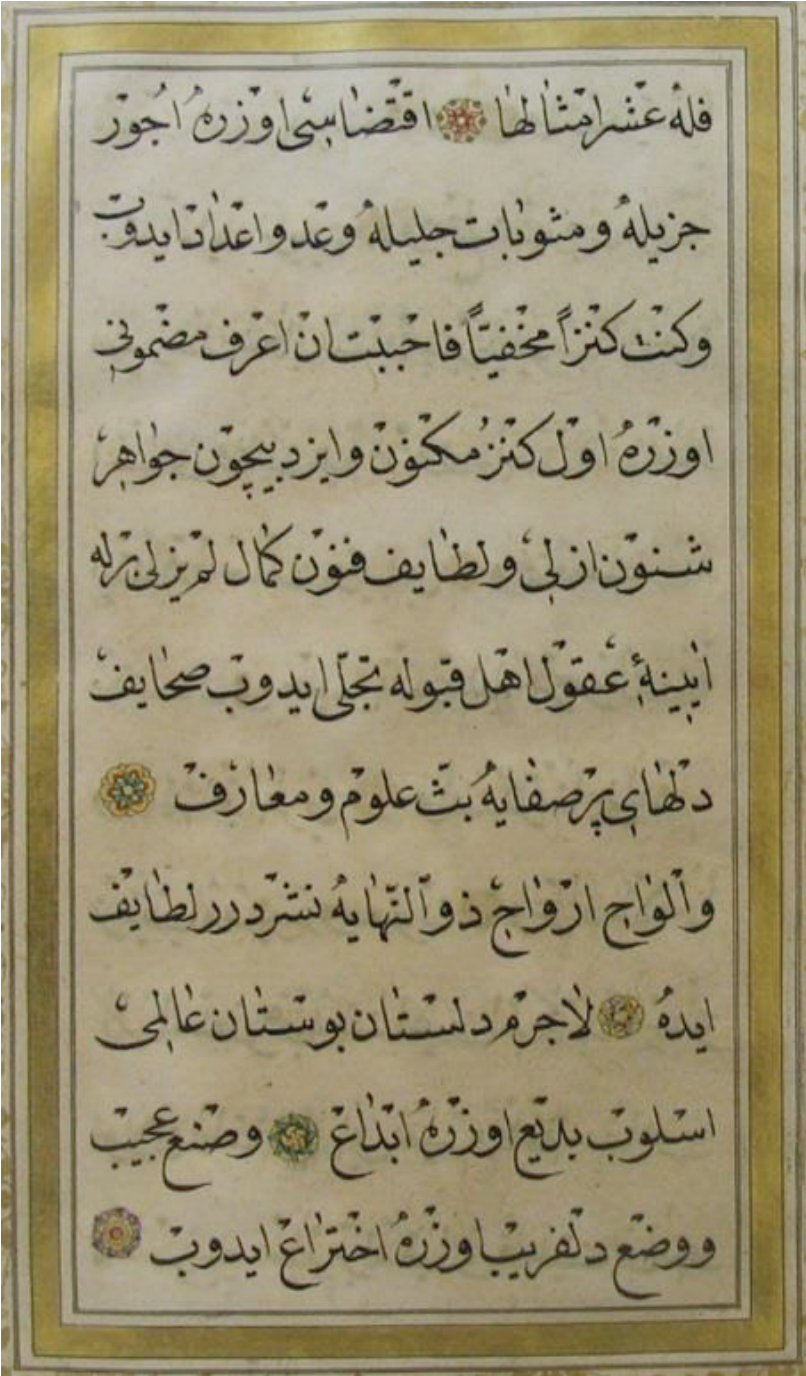 فله عشر امثالها اقتضاسی اوزره اجور
جزیله و مثوبات جلیله وعد و اعداد ایدوب
وکنت کنزاً مخفیّاً فاحببت ان اعرف مضمونی
اوزره اول کنز مکنون و ایزد بیچون جواهر
شئون ازلی و لطایف فنون کمال لم یزلی برله
آیینهٔ عقول اهل قبوله تجلّی ایدوب صحایف
دلهای پر صفایه بثّ علوم و معارف
والواح ارواح ذو النّهایه نشر درر لطایف
ایده لاجرم دلستان بوستان عالمی
اسلوب بدیع اوزره ابداع وصنع عجیب
و وضع دلفریب اوزره اختراع ایدوب